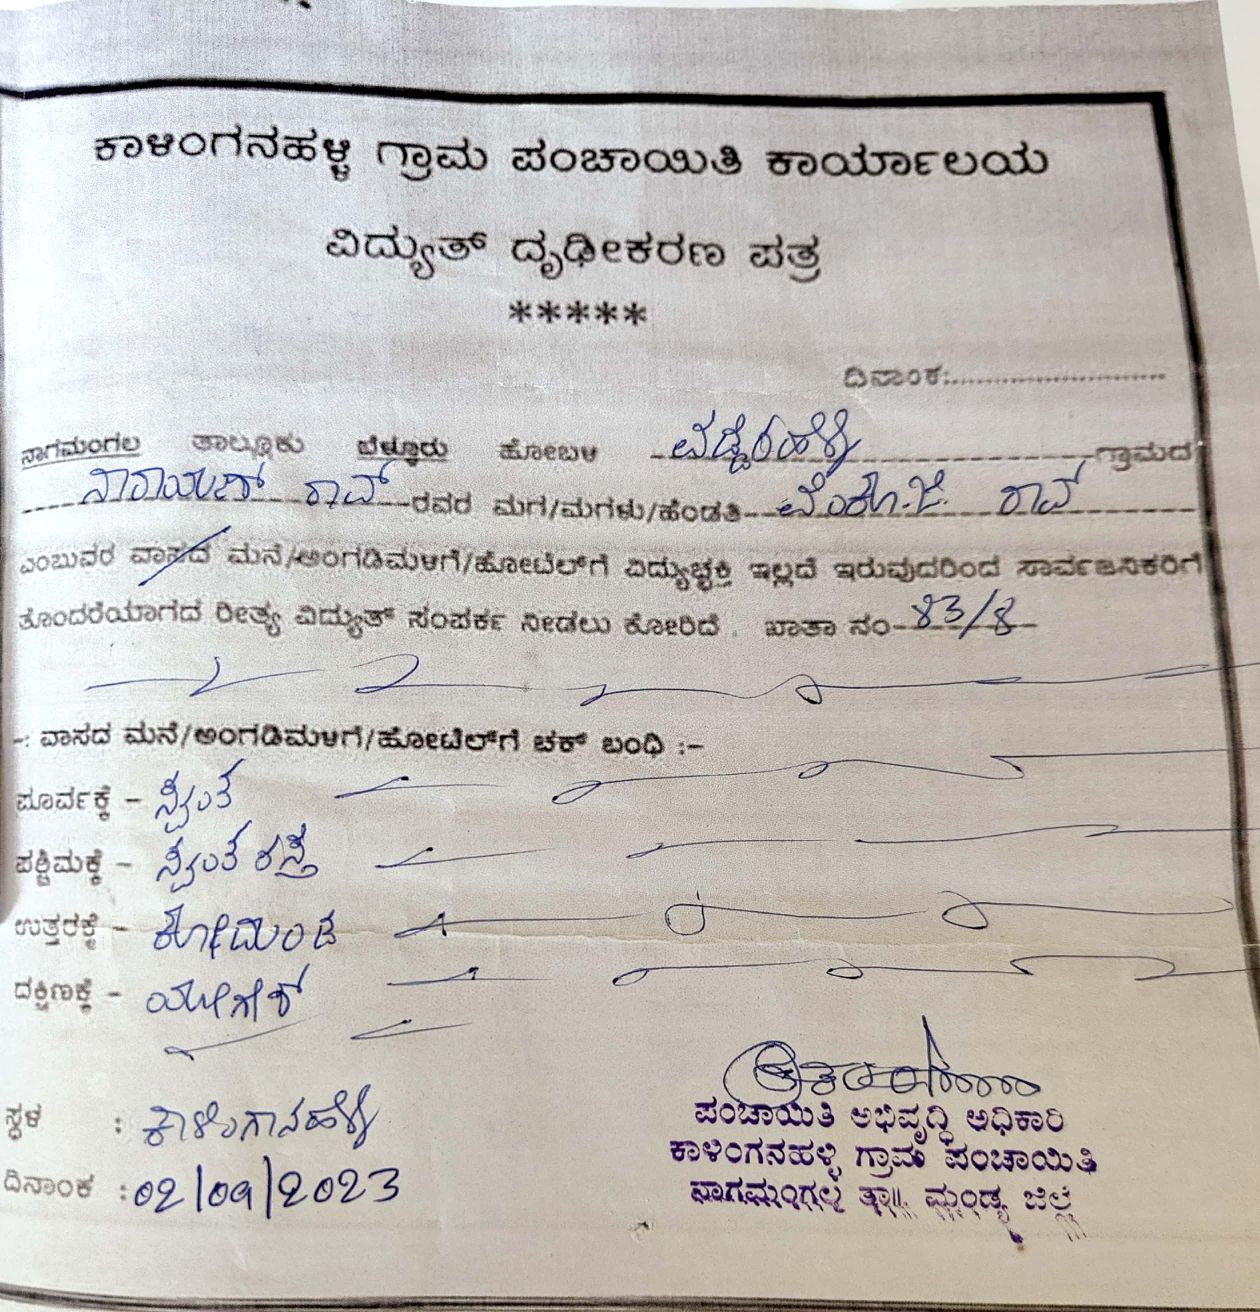 ಕಾಳಿಂಗನಹಳ್ಳಿ ಗ್ರಾಮ ಪಂಚಾಯಿತಿ ಕಾರ್ಯಾಲಯ
ವಿದ್ಯುತ್ ದೃಢೀಕರಣ ಪತ್ರ
*****
ದಿನಾಂಕ:..............................
ನಾಗಮಂಗಲ ತಾಲ್ಲೂಕು ಬೆಳ್ಳೂರು ಹೋಬಳಿ ವಡ್ಡೆರಹಳ್ಳಿ ಗ್ರಾಮದ
ನಾರಾಯಣ್ ರಾವ್ ರವರ ಮಗ/ಮಗಳು/ಹೆಂಡತಿ ವೆಂಕೋಜಿ ರಾವ್
ಎಂಬುವರ ವಾಸದ ಮನೆ/ಅಂಗಡಿಮಳಿಗೆ/ಹೋಟೆಲ್‌ಗೆ ವಿದ್ಯುಚ್ಛಕ್ತಿ ಇಲ್ಲದೆ ಇರುವುದರಿಂದ ಸಾರ್ವಜನಿಕರಿಗೆ
ತೊಂದರೆಯಾಗದ ರೀತ್ಯ ವಿದ್ಯುತ್ ಸಂಪರ್ಕ ನೀಡಲು ಕೋರಿದೆ. ಖಾತಾ ನಂ-83/8
-: ವಾಸದ ಮನೆ/ಅಂಗಡಿಮಳಿಗೆ/ಹೋಟೆಲ್‌ಗೆ ಚಕ್ ಬಂಧಿ :-
ಪೂರ್ವಕ್ಕೆ - ಸ್ವಂತ
ಪಶ್ಚಿಮಕ್ಕೆ - ಸ್ವಂತ ರಸ್ತೆ
ಉತ್ತರಕ್ಕೆ -
ದಕ್ಷಿಣಕ್ಕೆ - ಯೋಗೇಶ್
ಸ್ಥಳ : ಕಾಳಿಂಗಾನಹಳ್ಳಿ
ದಿನಾಂಕ : 02/09/2023
ಪಂಚಾಯಿತಿ ಅಭಿವೃದ್ಧಿ ಅಧಿಕಾರಿ
ಕಾಳಿಂಗನಹಳ್ಳಿ ಗ್ರಾಮ ಪಂಚಾಯಿತಿ
ನಾಗಮಂಗಲ ತಾ|| ಮಂಡ್ಯ ಜಿಲ್ಲೆ